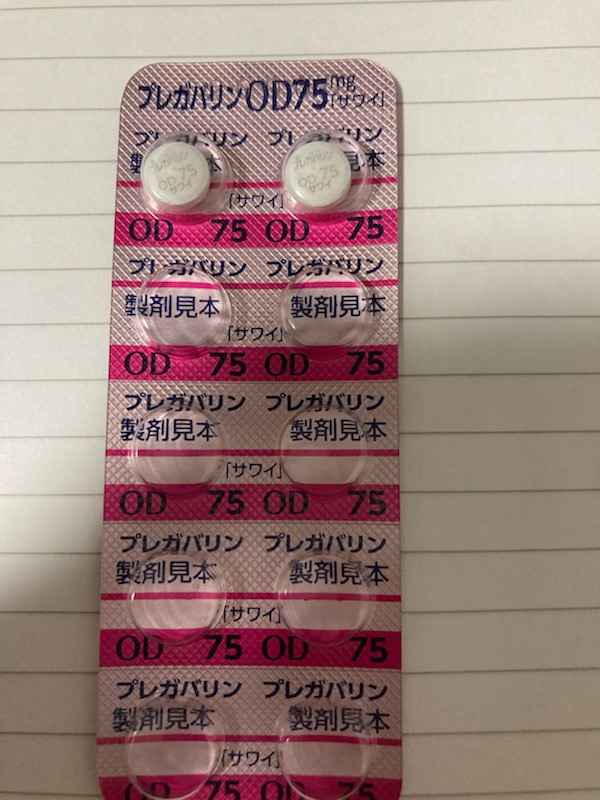 プレガバリンOD75mg「サワイ」
プレガバリン プレガバリン
製 見本
プレガバリン プレガバリン
OD 75 OD 75
サワイ サワイ
「サワイ」
OD 75 OD 75
プレガバリン プレガバリン
製剤見本 製剤見本
「サワイ」
OD 75 OD 75
プレガバリン プレガバリン
製剤見本 製剤見本
「サワイ」
OD 75 OD 75
プレガバリン プレガバリン
製剤見本 製剤見本
「サワイ」
OD 75 OD 75
プレガバリン プレガバリン
製剤見本 製剤見本
「サワイ」
OD 75 OD 75